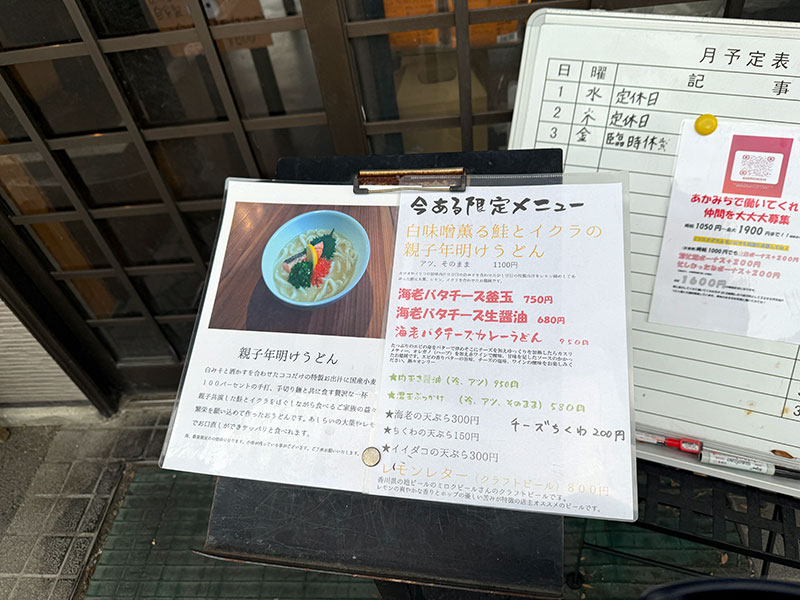 月予定表
日 曜 記事
1 水 定休日
2 木 定休日
3 金 臨時休業
あかみちで働いてくれ
仲間を大大大募集
時給1050円～最大1900円まで!
+200円
+200円
1600円
今ある限定メニュー
白味噌薫る鮭とイクラの
親子年明けうどん
アツ、そのまま 1100円
海老バタチーズ釜玉 750円
海老バタチーズ生醤油 680円
海老バタチーズカレーうどん 950円
★肉ぶき醤油(冷、アツ)950円
★温玉ぶっかけ(冷、アツ、そのまま)580円
★海老の天ぷら300円
★ちくわの天ぷら150円
チーズちくわ200円
★イイダコの天ぷら300円
レモンレター(クラフトビール)800円
香川県の地ビールのミロクビールさんのクラフトビールです。
レモンの爽やかな香りとホップの優しい苦みが特徴の店主オススメのビールです。
親子年明けうどん
白みそと酒かすを合わせたココだけの特製お出汁に国産小麦
100パーセントの手打、手切り麺と共に食す贅沢な一杯
親子共演した鮭とイクラをほぐしながら食べるご家族の益々
繁栄を願い込めて作ったおうどんです。あしらいの大葉やレモ
ンでお口直しができサッパリと食べれます。